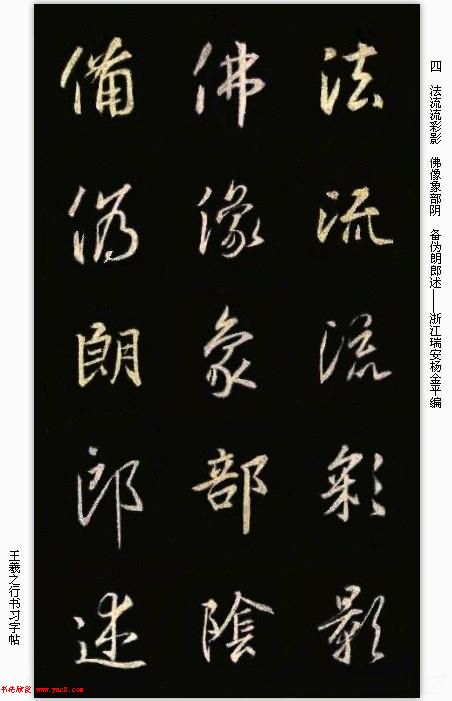 四 法流流彩影 佛像象部阴 备伪朗郎述——浙江瑞安杨金平编
法流流彩影
佛像象部陰
備偽朗郎述
王羲之行书习字帖
书法欣赏 www.yac8.com